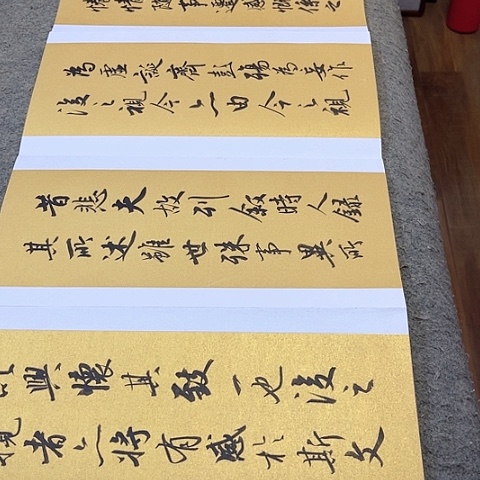 情隨事遷感慨係之
為虛誕齊彭殤為妄作
後之視今亦由今之視
昔悲夫故列敘時人錄
其所述雖世殊事異所
以興懷其致一也後之
覽者亦將有感於斯文